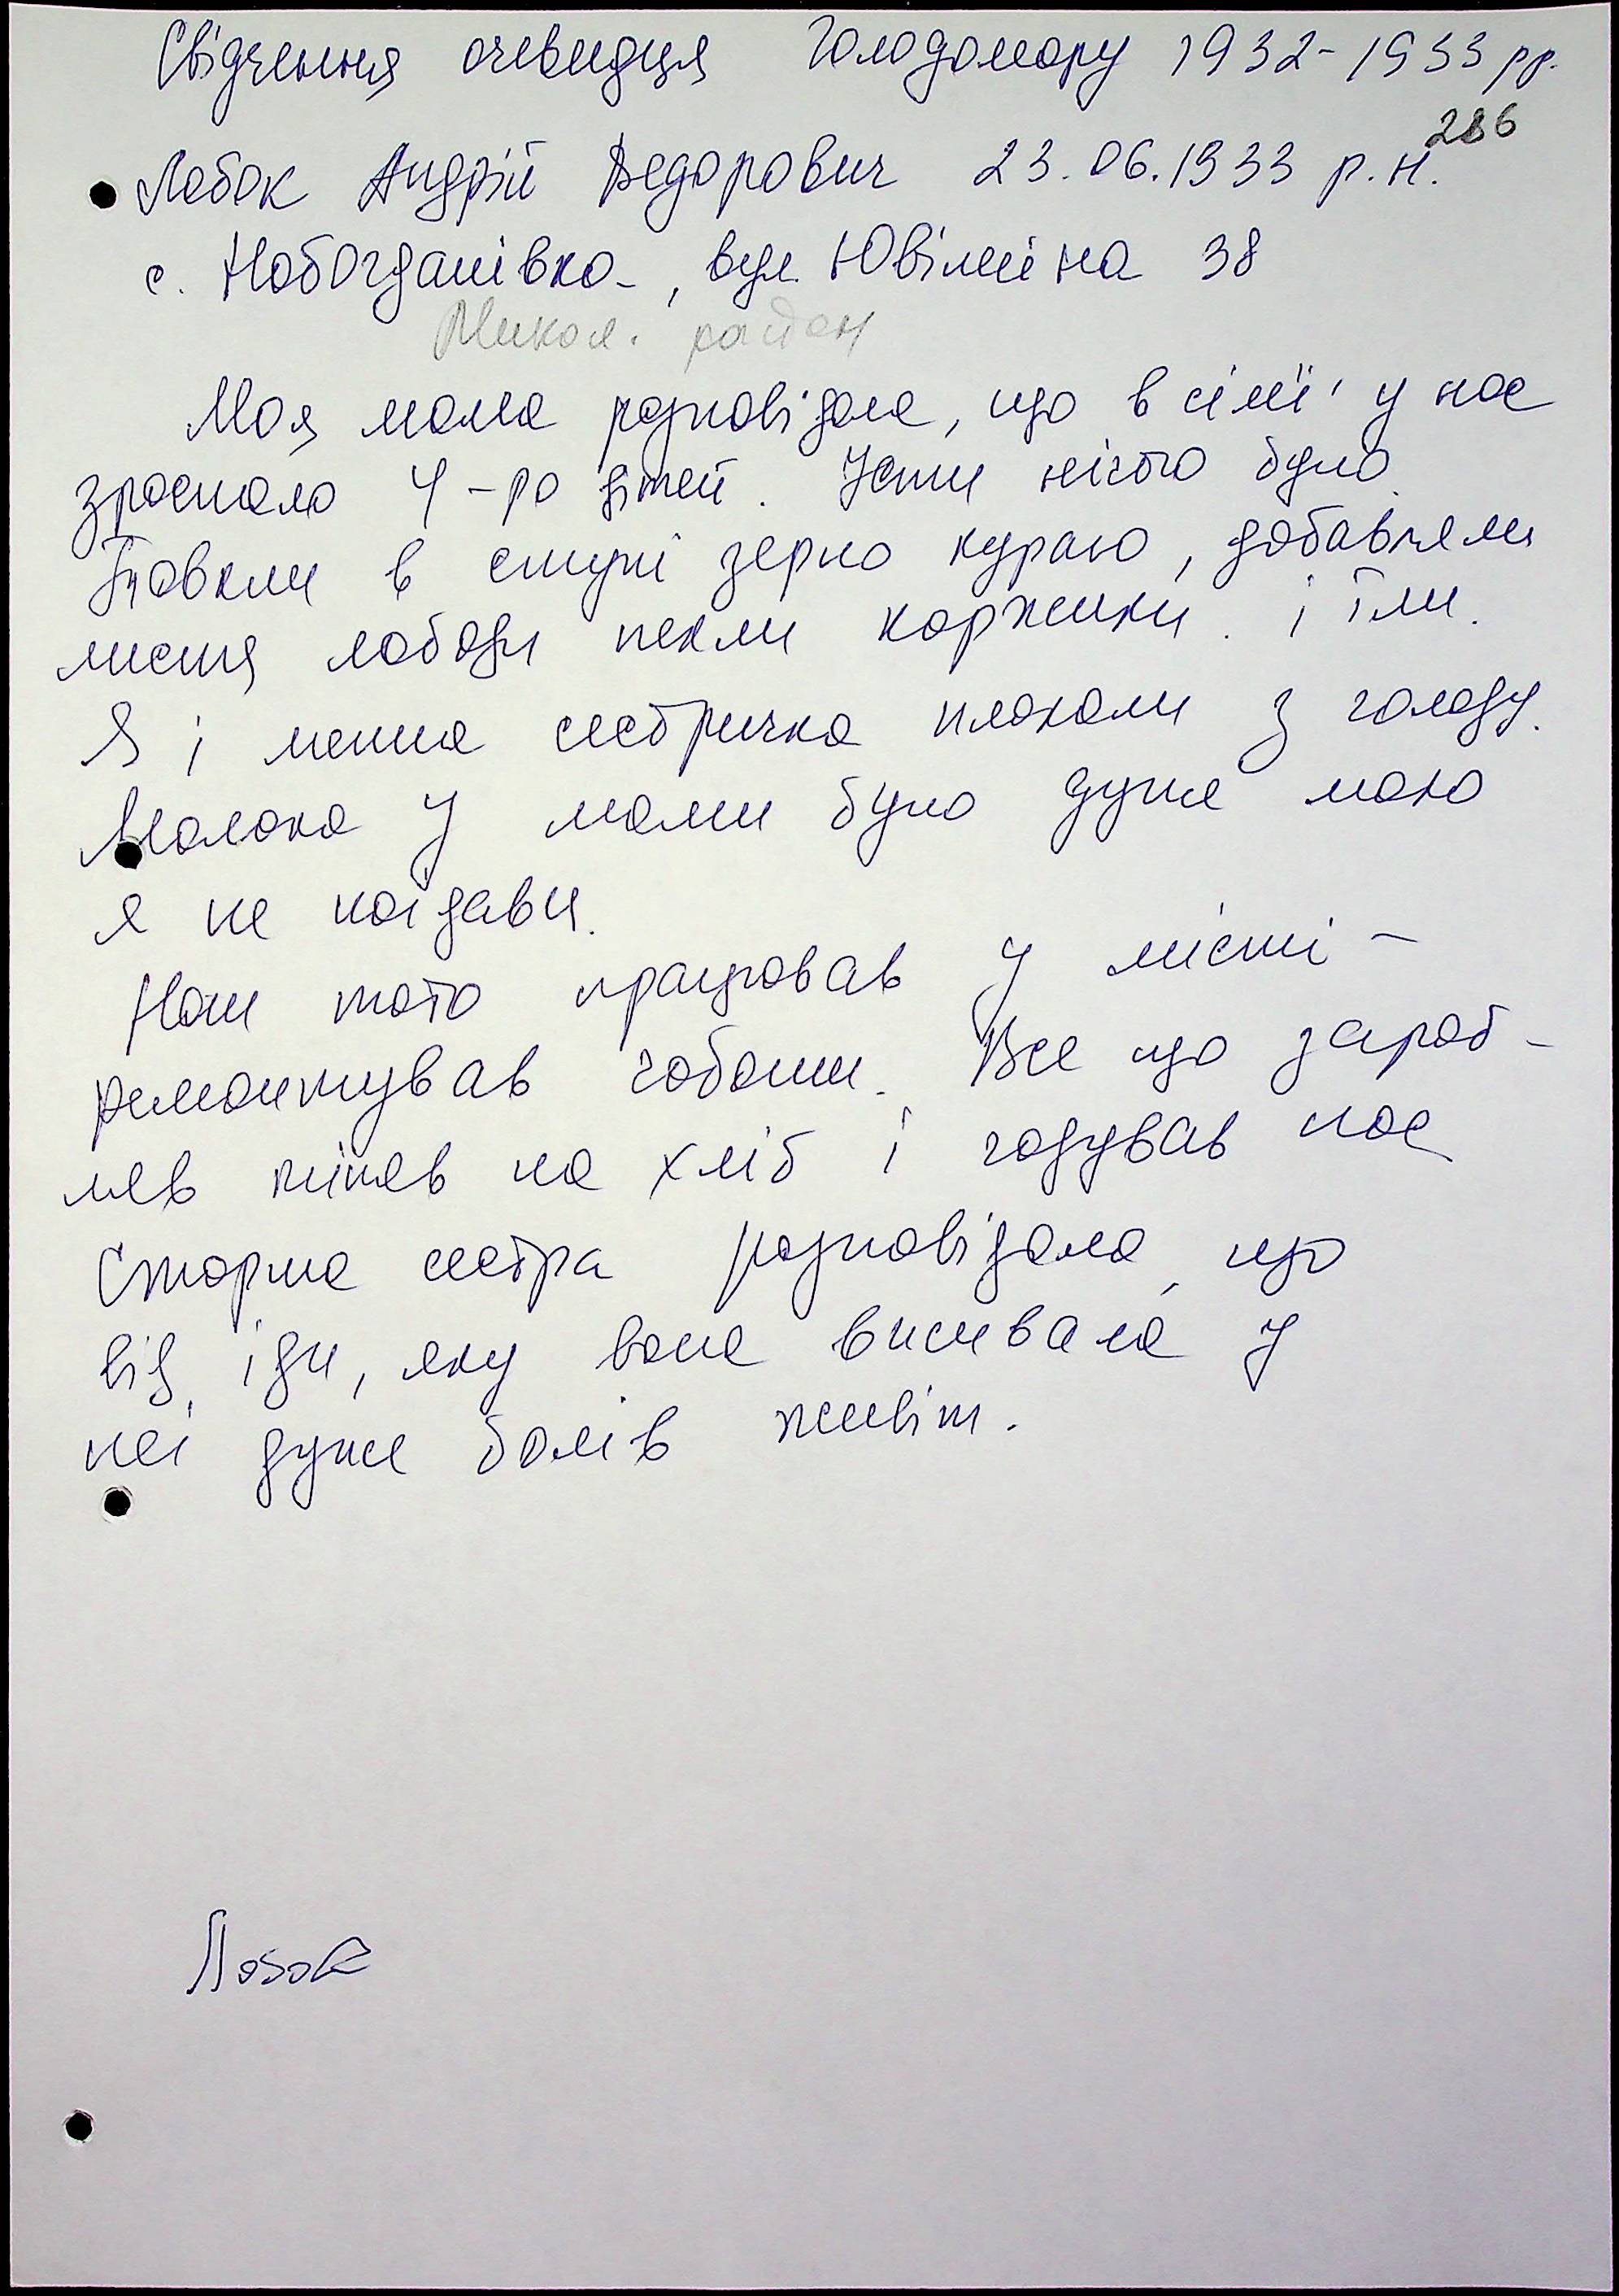 Свідчення очевидця Голодомору 1932-1933 рр.
286
Лобок Андрій Федорович 23.06.1933 р.н.
с. Новобогданівка, вул. Ювілейна 38
Микол. район
Моя мама розповідала, що в сім'ї у нас
зростало 4-ро дітей. Їсти нічого було.
Товкли в ступі зерно кураю, добавляли
листя лободи пекли коржики. і їли.
Я і менша сестричка плакали з голоду.
Молока у мами було дуже мало
я не наїдався.
Наш тато працював у місті -
ремонтував чоботи. Все що зароб-
ляв міняв на хліб і годував нас
Старша сестра розповідала, що
від їди, яку вона вживала у
неї дуже болів живіт.
Лобок